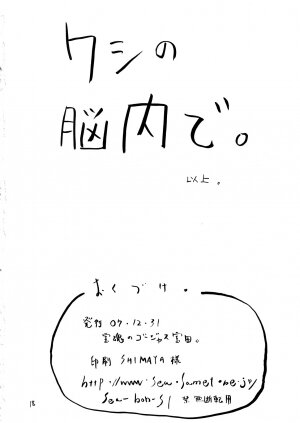 ワシの
脳内で。
以上。
おくづけ。
発行 07.12.31
宝魂のゴージャス宝田。
印刷 SHIMAYA 様
http://www.sea.sannet.ne.jp/
sea-bon-s/ 禁無断転用
18